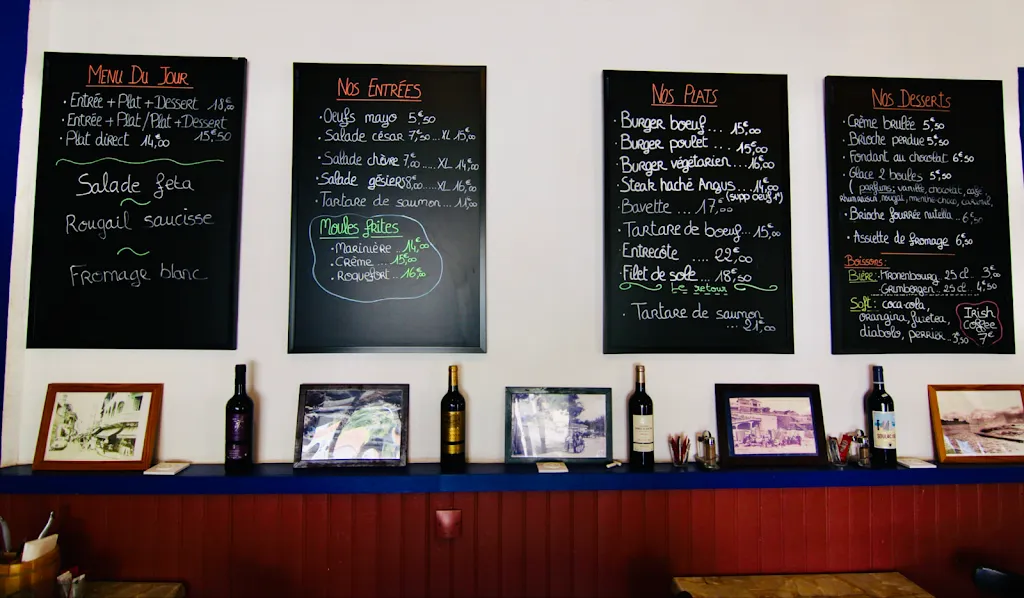 MENU DU JOUR
• Entrée + Plat + Dessert 18,00€
• Entrée + Plat / Plat + Dessert
15,50€
• Plat direct 14,00€
Salade feta
Rougail saucisse
Fromage blanc
NOS ENTRÉES
• Oeufs mayo 5,50€
• Salade césar 7,50€...XL 15,00€
• Salade chèvre 7,00€....XL 14,00€
• Salade gésiers 8,00€....XL 16,00€
• Tartare de saumon...11,00€
Moules frites
• Marinière... 14,00€
• Crème ... 15,00€
• Roquefort... 16,00€
NOS PLATS
• Burger boeuf... 15,00€
• Burger poulet ... 15,00€
• Burger végétarien...16,00€
• Steak haché Angus...14,00€
(supp oeuf 1€)
• Bavette ... 17,00€
• Tartare de boeuf...15,00€
• Entrecôte .... 22,00€
• Filet de sole... 18,50€
Le retour
• Tartare de saumon
... 21,00€
NOS DESSERTS
• Crème brulée 5,50€
• Brioche perdue 5,50€
• Fondant au chocolat 6,50€
• Glace 2 boules 5,50€
(parfums: vanille, chocolat, café,
rhum raisin, nougat, menthe-choco, caramel,
• Brioche fourrée nutella... 6,50€
• Assiette de fromage 6,50€
Boissons:
Bière: • Kronenbourg...25 cl.. 3,00€
• Grimbergen...25 cl.. 4,50€
Soft: coca-cola,
orangina, fuzetea,
diabolo, perrier...3,50€
IRISH
COFFEE
7€